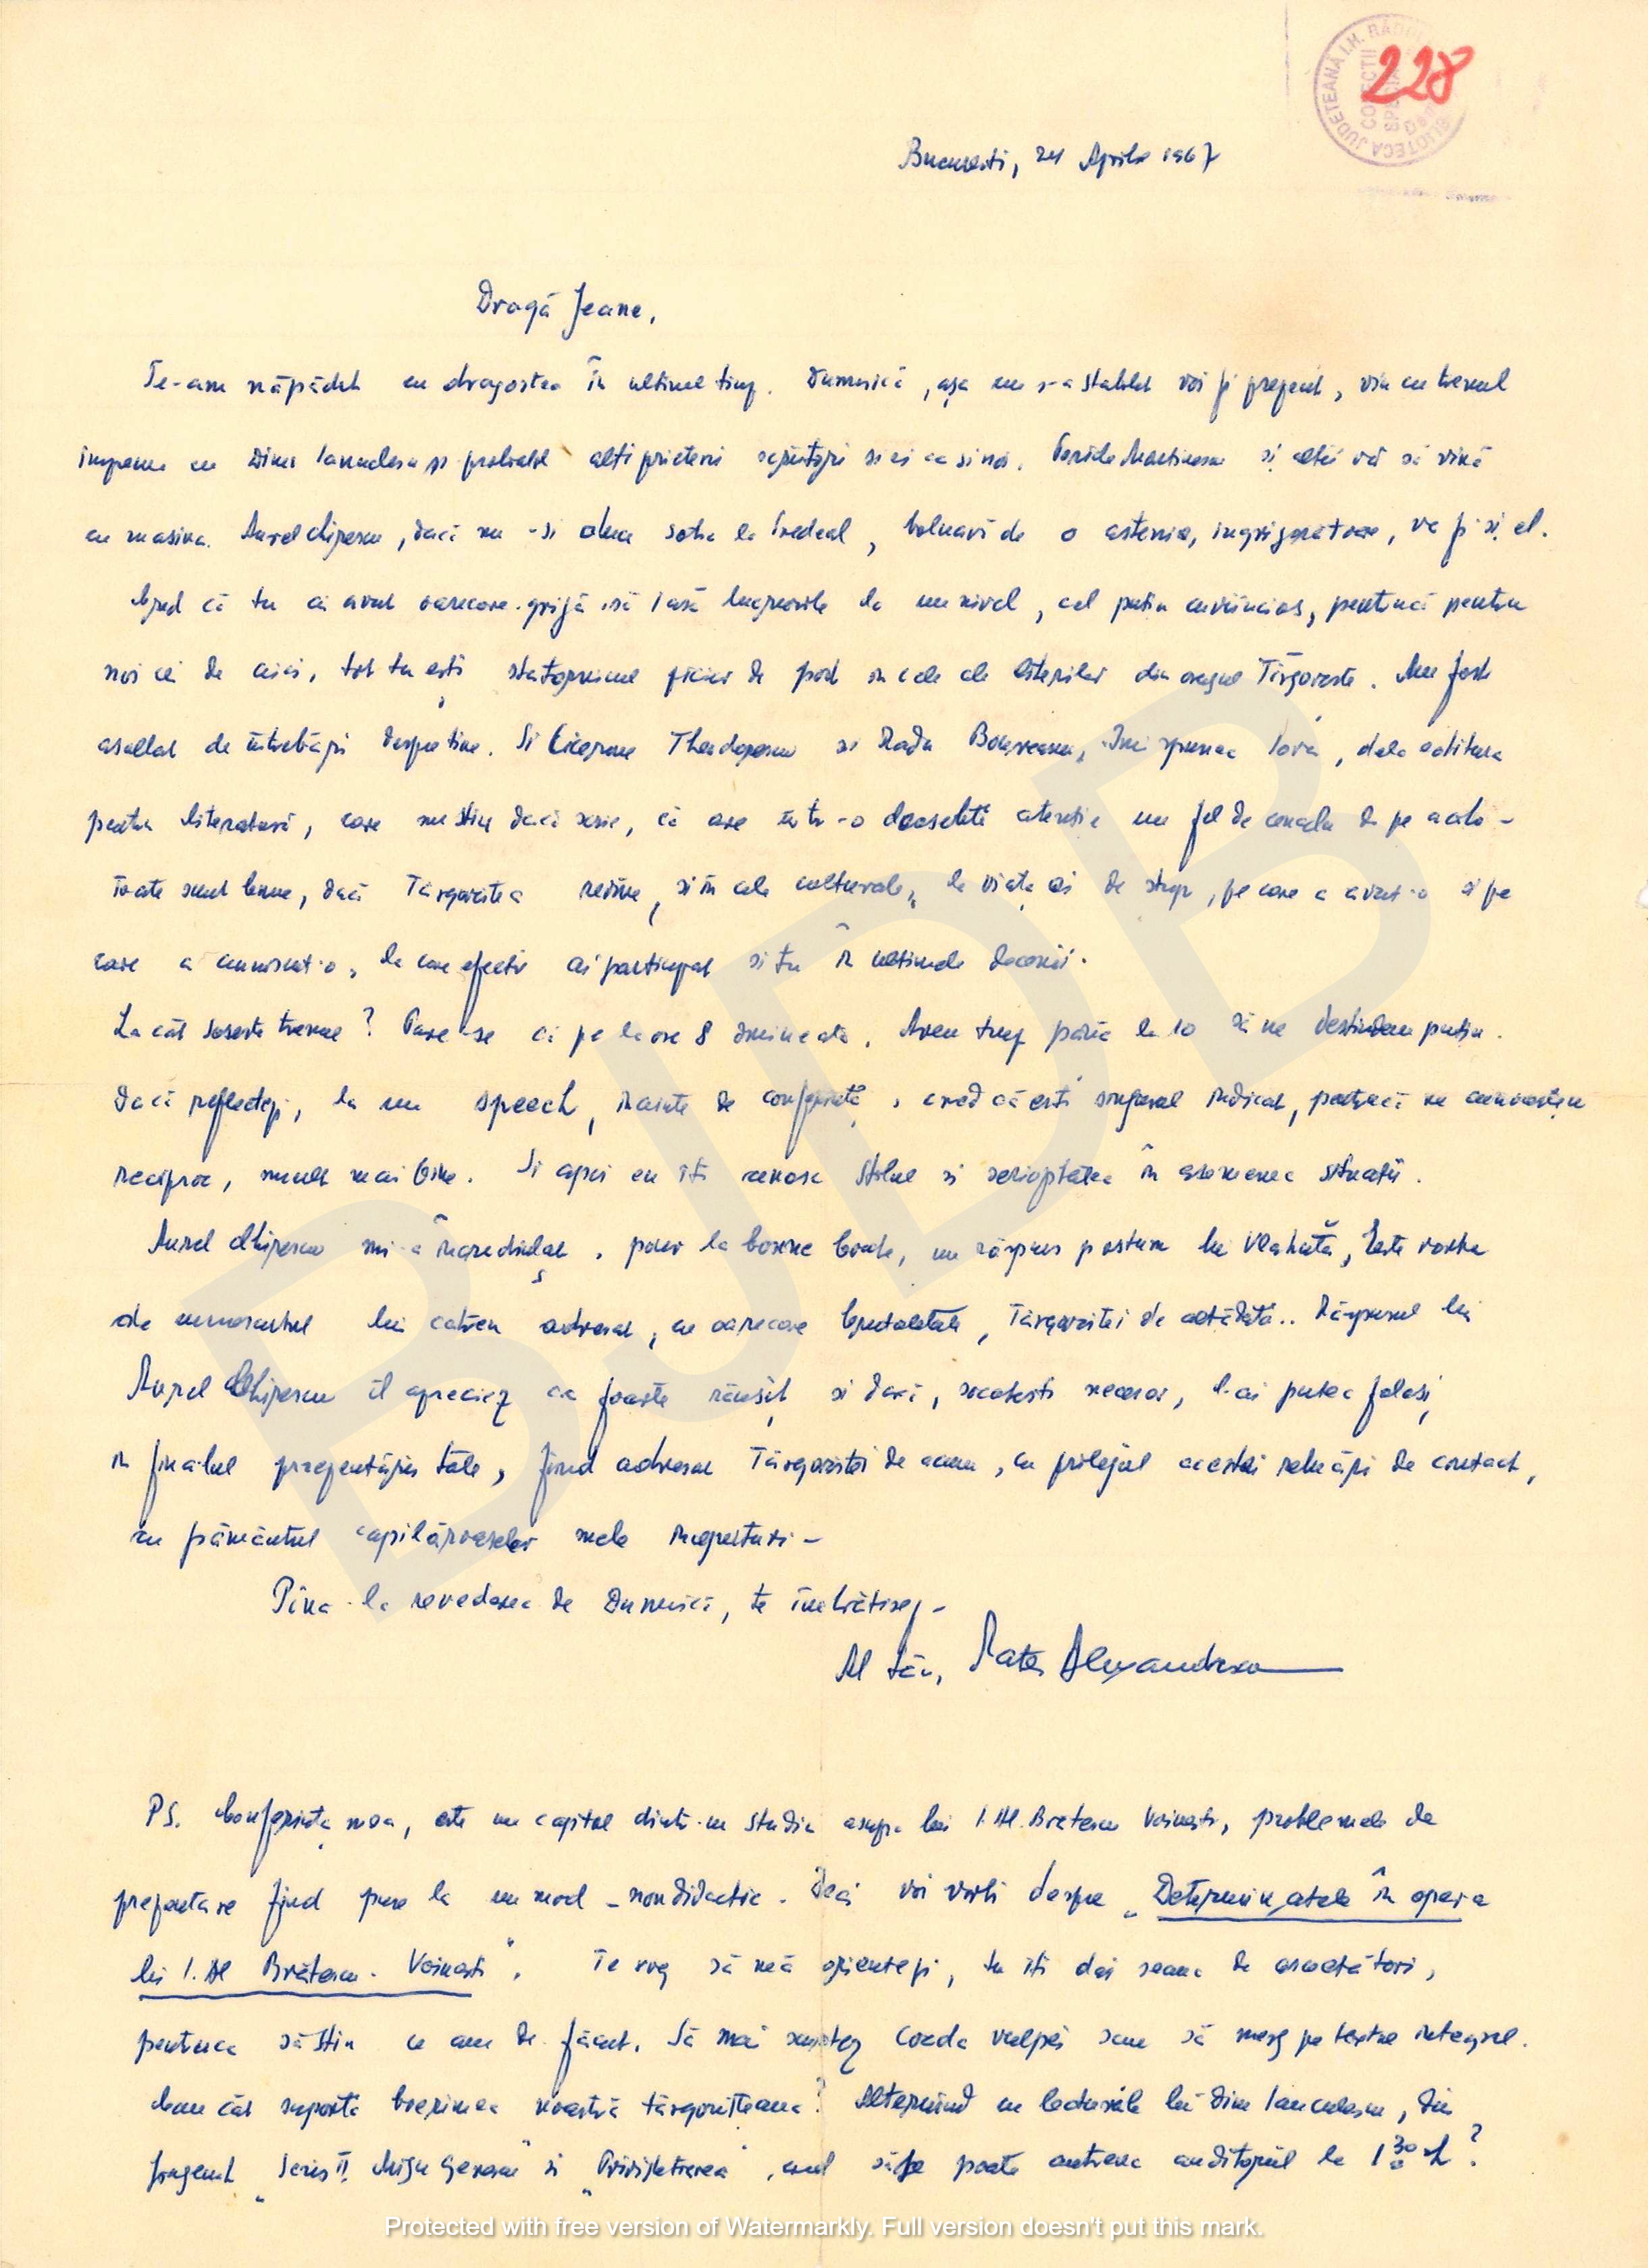 228
București, 24 Aprilie 1967
Dragă Jeane,
Te-am năpădit cu dragostea în ultimul timp. Duminică, așa cum s-a stabilit voi fi prezent, vin cu trenul
împreună cu Dinu Ianculescu și probabil alți prieteni scriitori și ei ca și noi. Martinescu și alții vor să vină
cu mașina. Aurel Chirescu, dacă nu -și duce soția la Predeal, bolnavă de o astenie, îngrijorătoare, va fi și el.
Cred că tu ai avut oarecare grijă să iasă lucrurile la un nivel, cel puțin cuviincios, pentrucă pentru
noi cei de aici, tot tu ești statornicul picior de pod în cele ale literilor din orașul Tîrgoviște. Am fost
asaltat de întrebări despre tine. Și Cicerone Theodorescu și Radu Boureanu, Îmi spunea Iova, dela editura
pentru literatură, care nu știu dacă scrie, că are într-o deosebită atenție un fel de cenaclu de pe acolo -
Toate sunt bune, dacă Târgoviștea revine, și în cele culturale, la viața ei de stup, pe care a avut-o și pe
care a cunoscut-o, la care efectiv ai participat și tu în ultimele decenii.
La cât sosește trenul? Pare-se că pe la ora 8 dimineața. Avem timp până la 10 să ne destindem puțin.
Dacă reflectezi, la un speech, înainte de conferință, cred că ești singurul indicat, pentrucă ne cunoaștem
reciproc, mult mai bine. Și apoi eu îți cunosc stilul și seriozitatea în asemenea situații.
Aurel Chirescu mi-a încredințat, pour la bonne bouche, un răspuns postum lui Vlahuță, Este vorba
de cunoscutul lui catren adresat, cu oarecare brutalitate, Târgoviștei de altădată.. Răspunsul lui
Aurel Chirescu îl apreciez ca foarte reușit și dacă, socotești necesar, l-ai putea folosi,
în finalul prezentării tale, fiind adresat Târgoviștei de acum, cu prilejul acestei reluări de contact,
cu pământul mele începuturi -
Pîna la revederea de Duminică, te îmbrățișez -
Al tău, Matei Alexandrescu
PS. Conferința mea, este un capitol dintr-un studiu asupra lui I. Al. Brătescu Voinești, problemele de
prezentare fiind puse la un mod - nondidactic. Deci voi vorbi despre „Determinantele în opera
lui I. Al Brătescu - Voinești”. Te rog să mă orientezi, tu îți dai seama de ascultători,
pentruca să știu ce am de făcut. Să mai scurtez coada vulpei sau să merg pe textul integral.
Cam cât suportă boerimea noastră târgovișteana? Alternând cu lecturile lui Dinu Ianculescu, din
fragment „Scriș II, Mișu Gerescu” și „Privighetoarea”, cred să se poate antrena auditoriul la 1 30 h?
Protected with free version of Watermarkly. Full version doesn't put this mark.